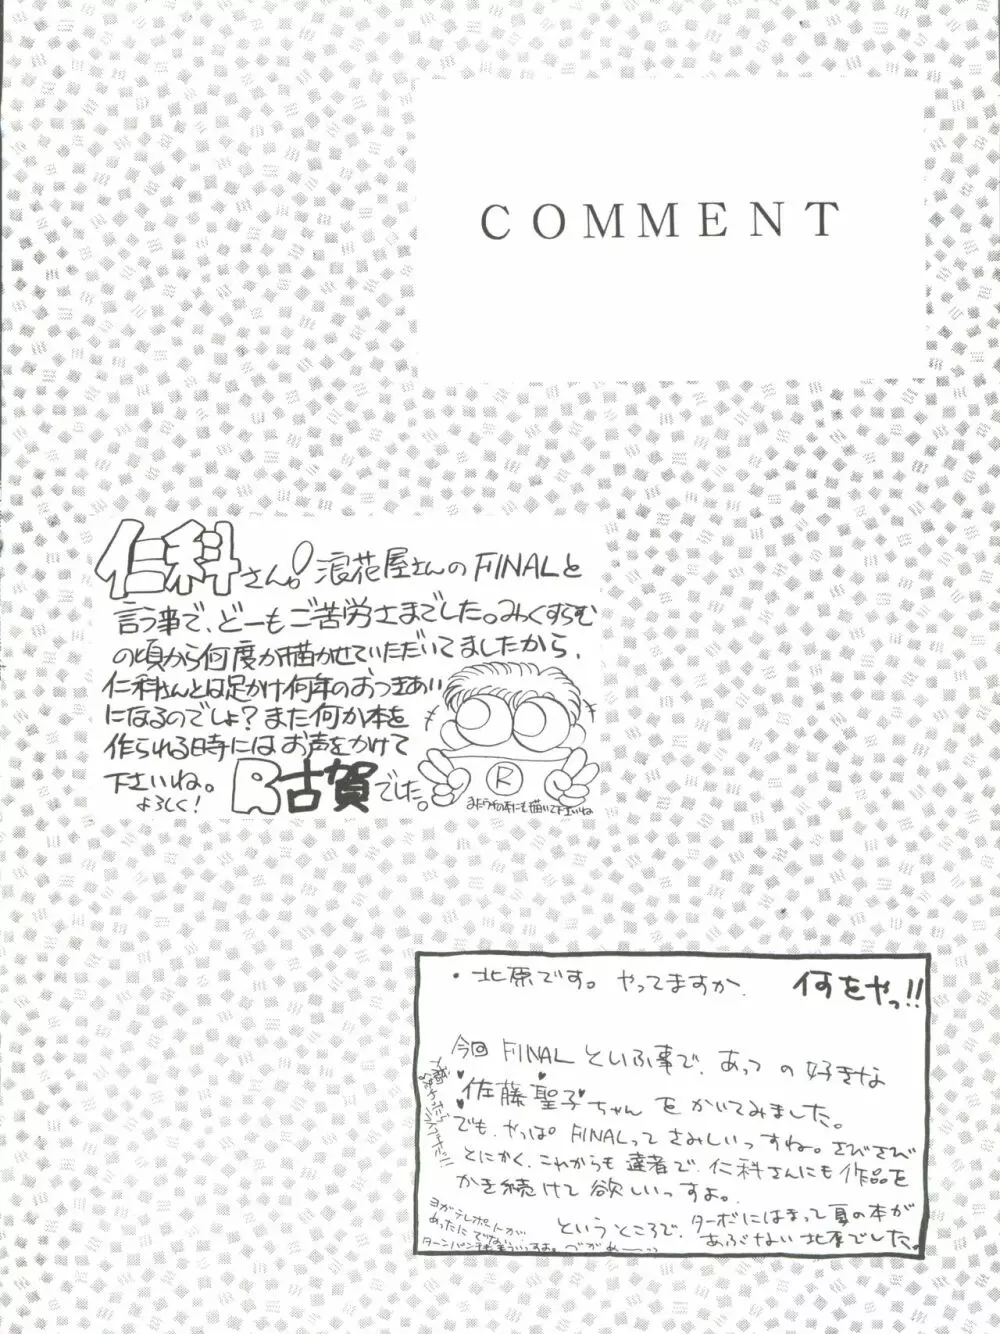 COMMENT
仁科さん!浪花屋さんのFINALと
言う事で、どーもご苦労さまでした。みっくすらむ
の頃から何度か描かせていただいてましたから、
仁科さんとは足かけ何年のおつきあい
になるのでしょ?また何か本を
作られる時にはお声をかけて
下さいね。
よろしく!
R古賀でした。
R
またうちの本にも描いて下さいね
・北原です。やってますか、
何をやっ!!
今回FINALといふ事で、あっつの好きな
佐藤聖子ちゃんをかいてみました。
でも、やっぱFINALってさみしいっすね。さびさび
とにかく、これからも達者で、仁科さんにも作品を
かき続けて欲しいっすよ。
というところで、ターボにはまって夏の本が
あぶない北原でした。
ヨガテレポートが
あったにでない
ターンパンチも